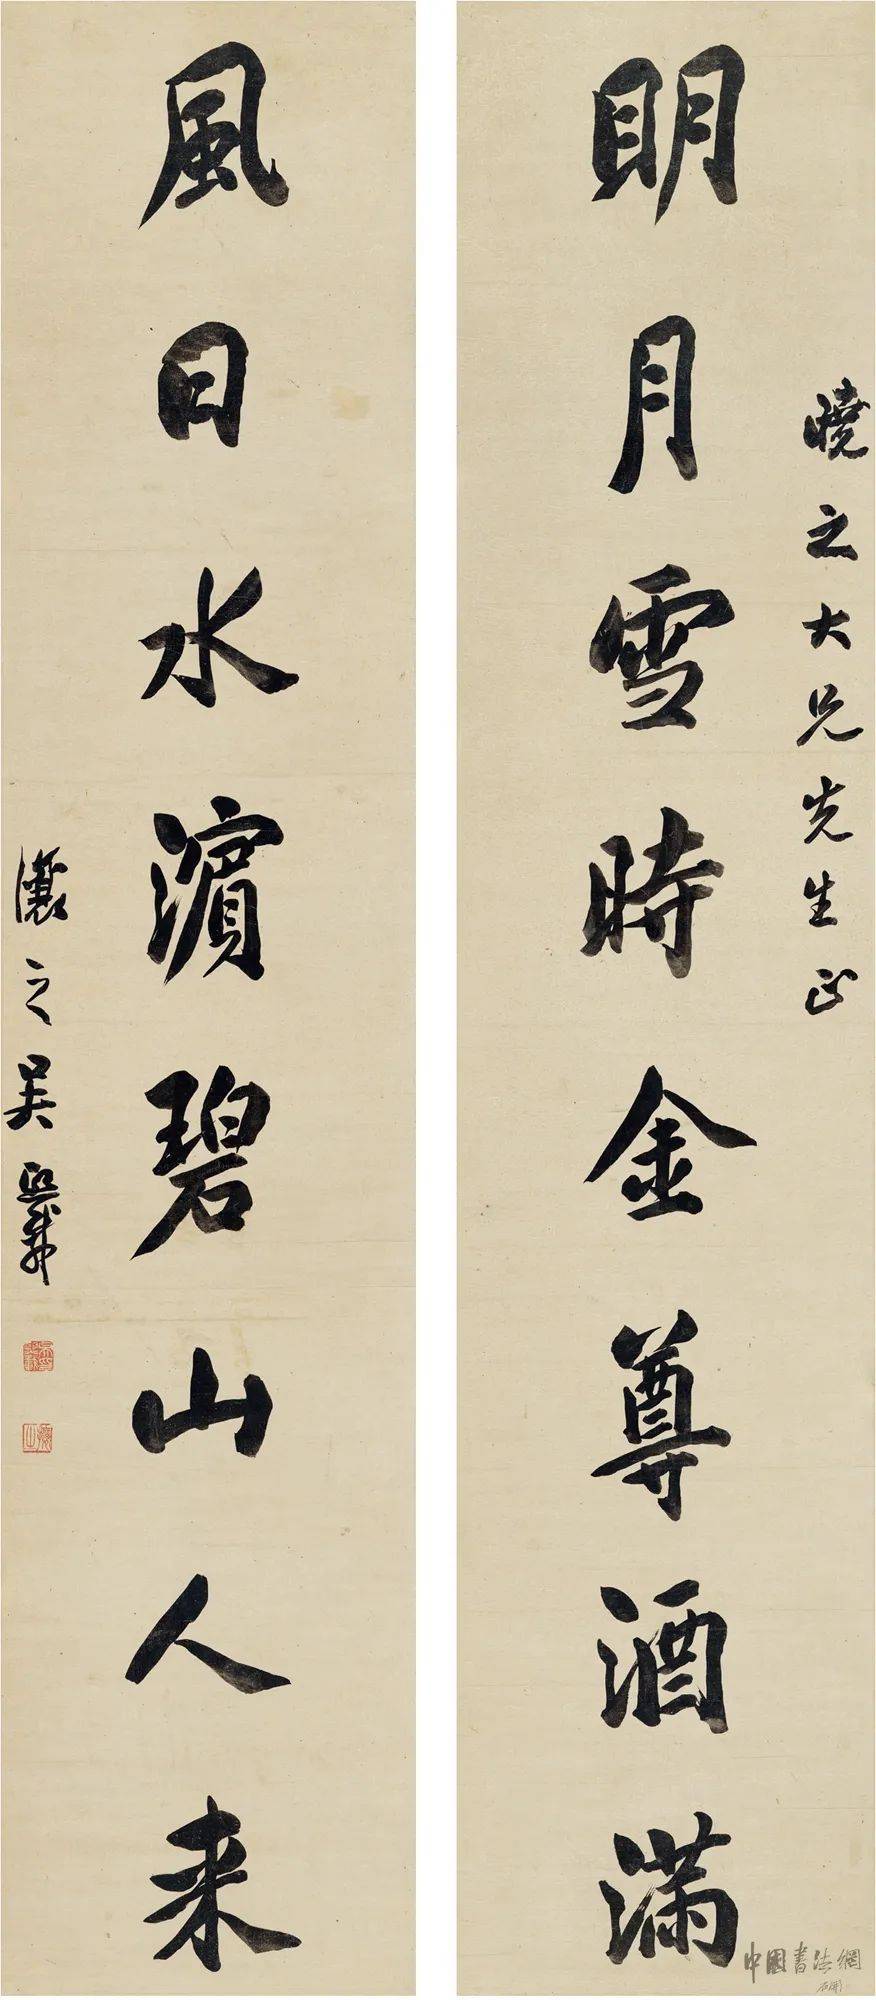 曉之大兄先生正
明月雪時金尊酒滿
風日水濱碧山人来
讓之吳熙載
中國書法網